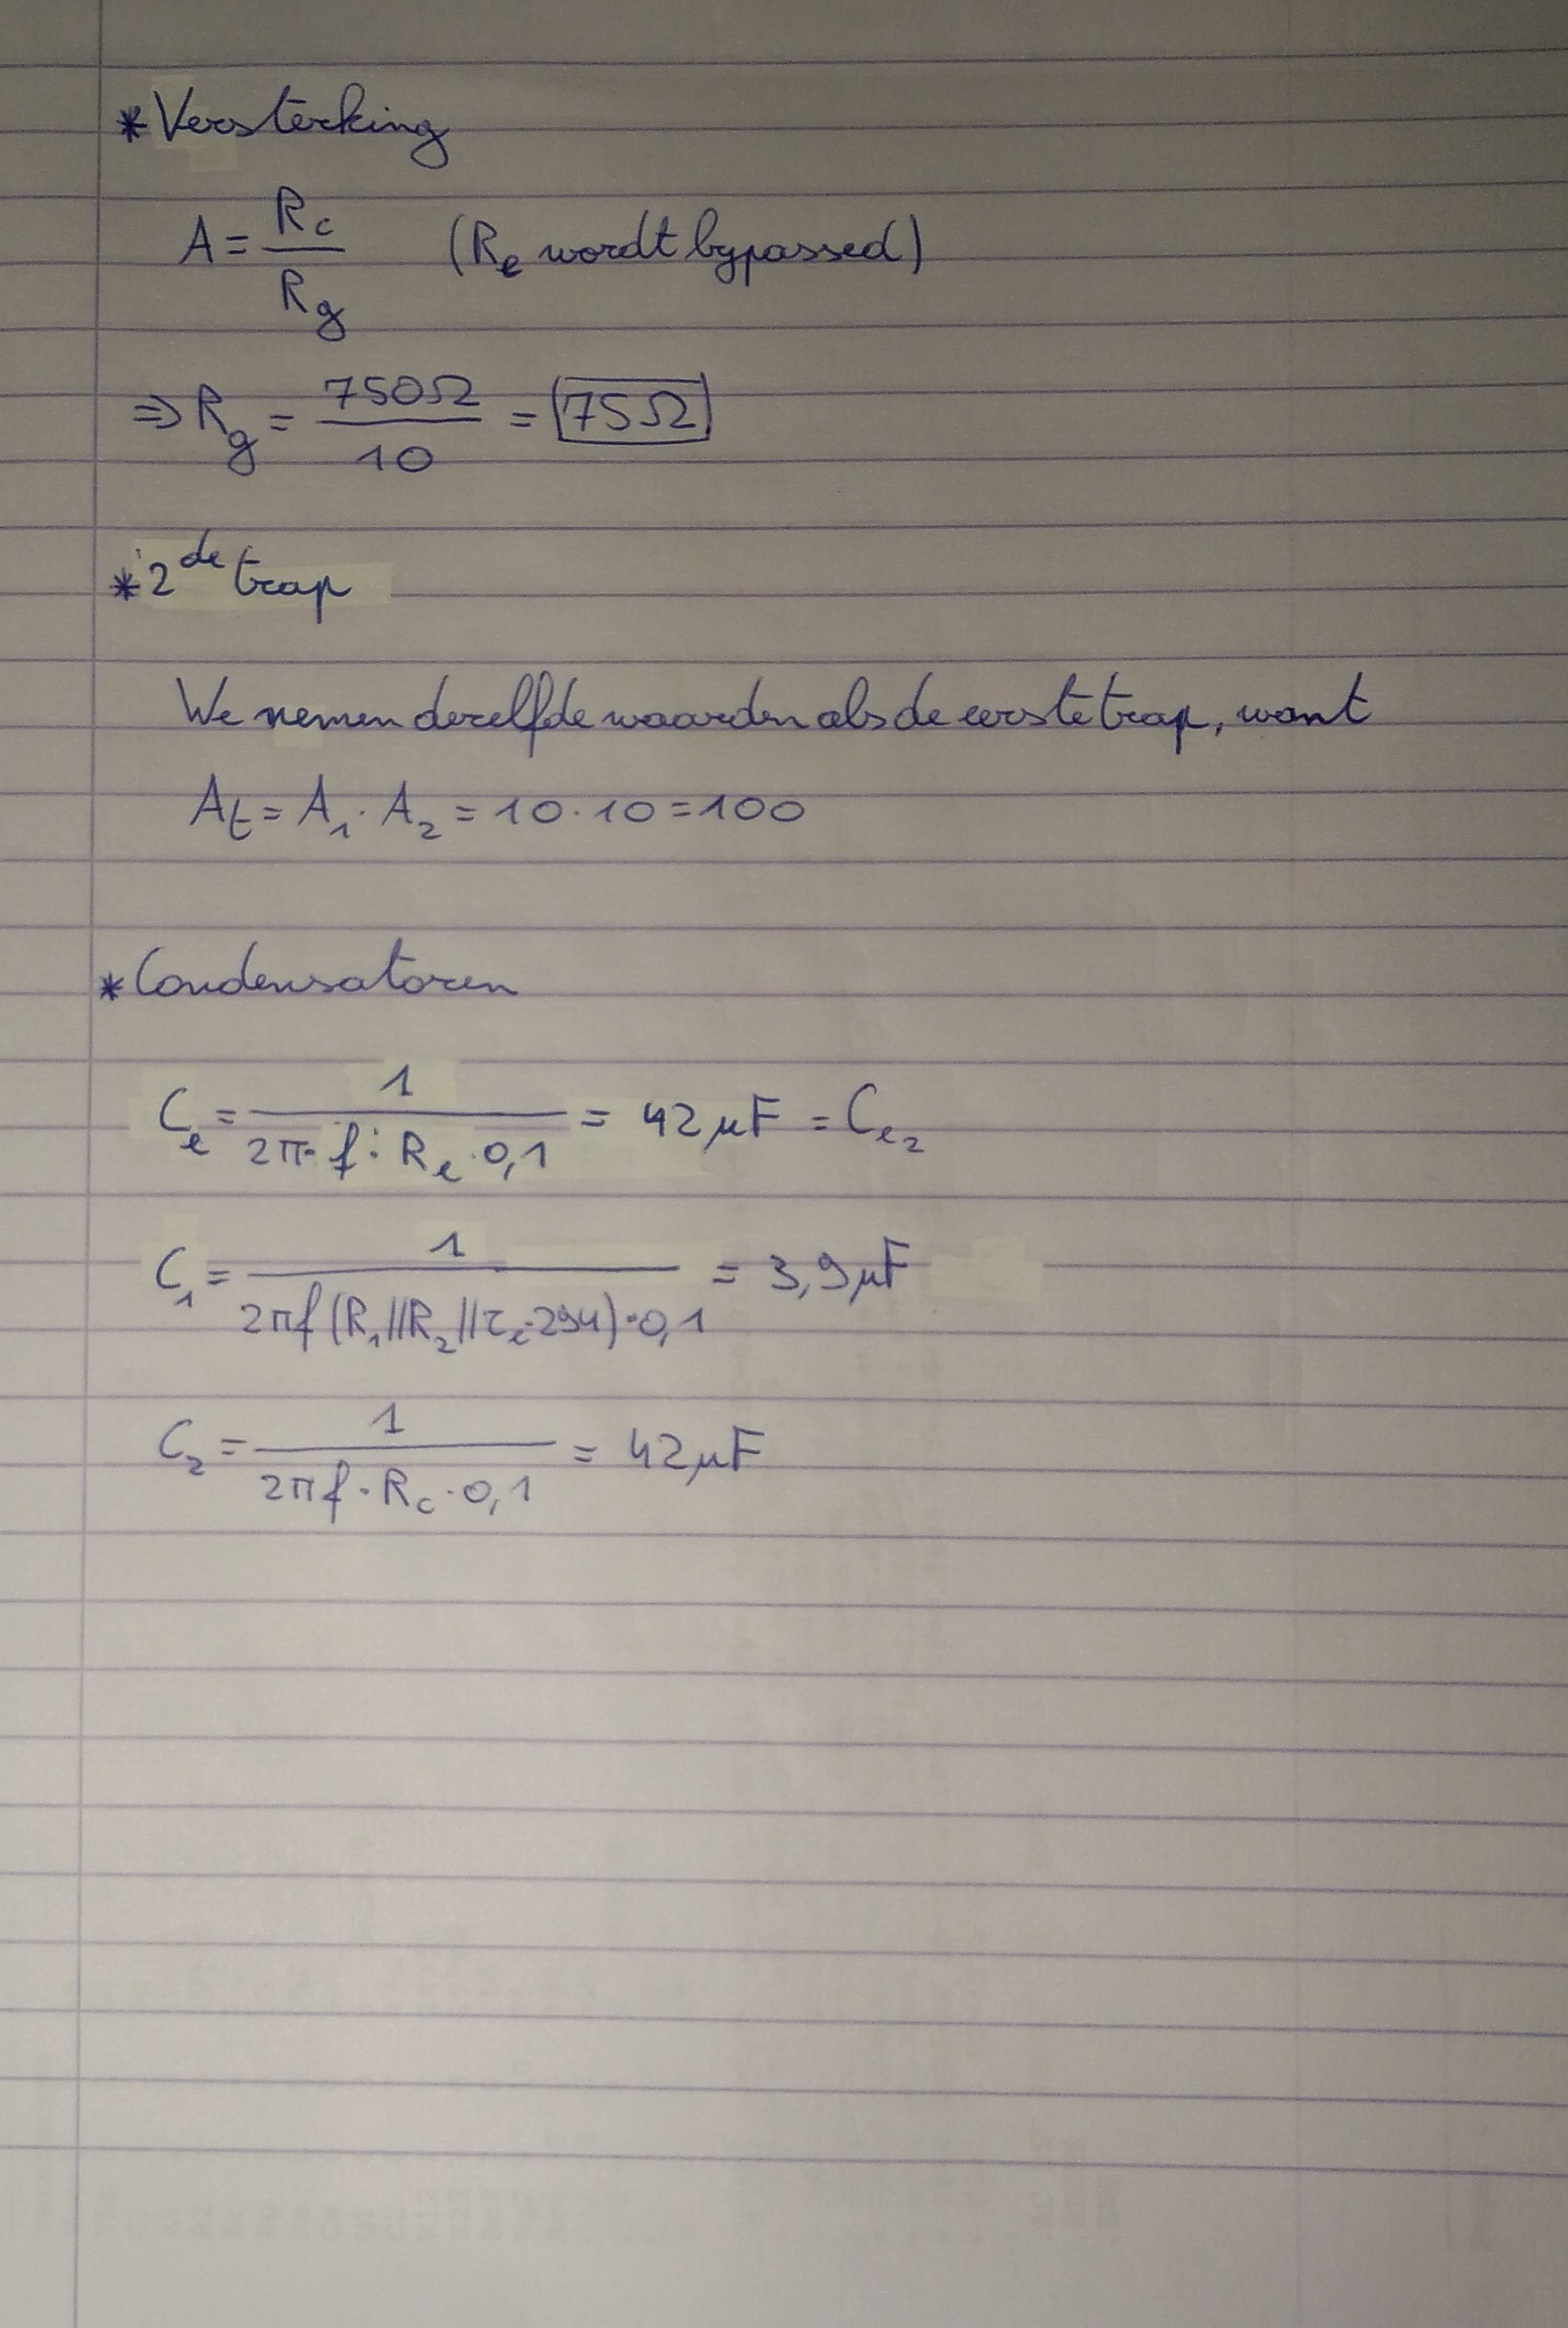 * Versterking
A = Rc / Rg (Re wordt bypassed)
⇒ Rg = 750Ω / 10 = 75Ω
* 2de trap
We nemen dezelfde waarden als de eerste trap, want
At = A1 · A2 = 10 · 10 = 100
* Condensatoren
Ce = 1 / 2π · f · Re · 0,1 = 42 μF = Ce2
C1 = 1 / 2πf (R1 // R2 // re · 294) · 0,1 = 3,9 μF
C2 = 1 / 2πf · Rc · 0,1 = 42 μF